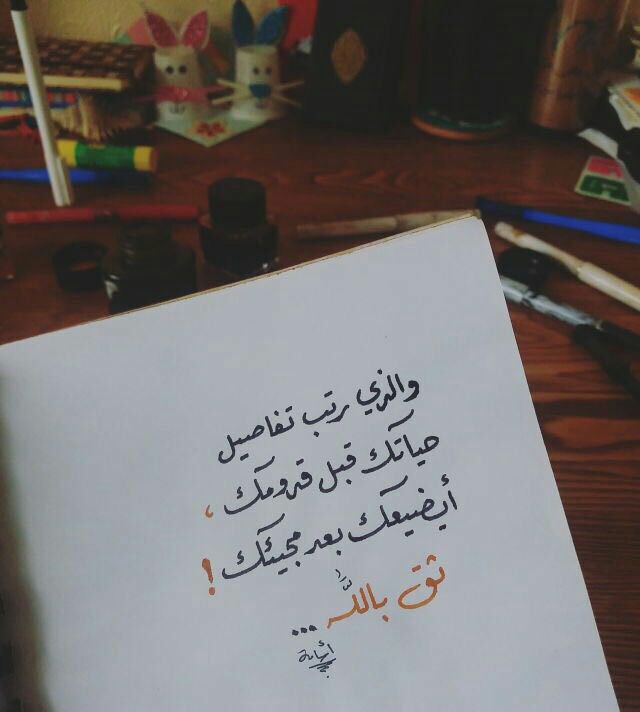 والذي رتب تفاصيل
حياتك قبل قدومك ،
أيضيعك بعد مجيئك !
ثق باللَّه ...